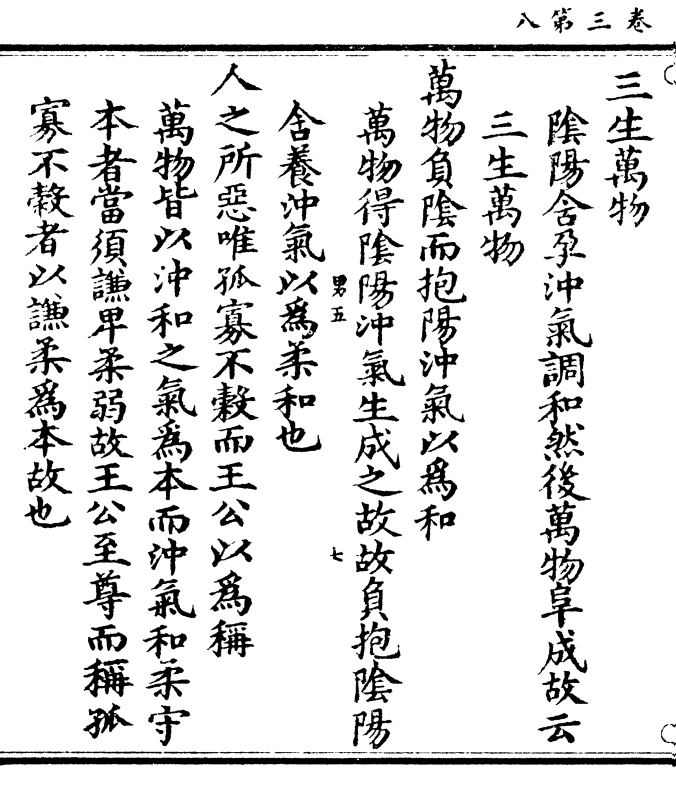 卷三第八
三生萬物
陰陽含孕沖氣調和然後萬物阜成故云
三生萬物
萬物負陰而抱陽沖氣以爲和
萬物得陰陽沖氣生成之故故負抱陰陽
含養沖氣以爲柔和也
男五
七
人之所惡唯孤寡不穀而王公以爲稱
萬物皆以沖和之氣爲本而沖氣和柔守
本者當須謙卑柔弱故王公至尊而稱孤
寡不穀者以謙柔爲本故也